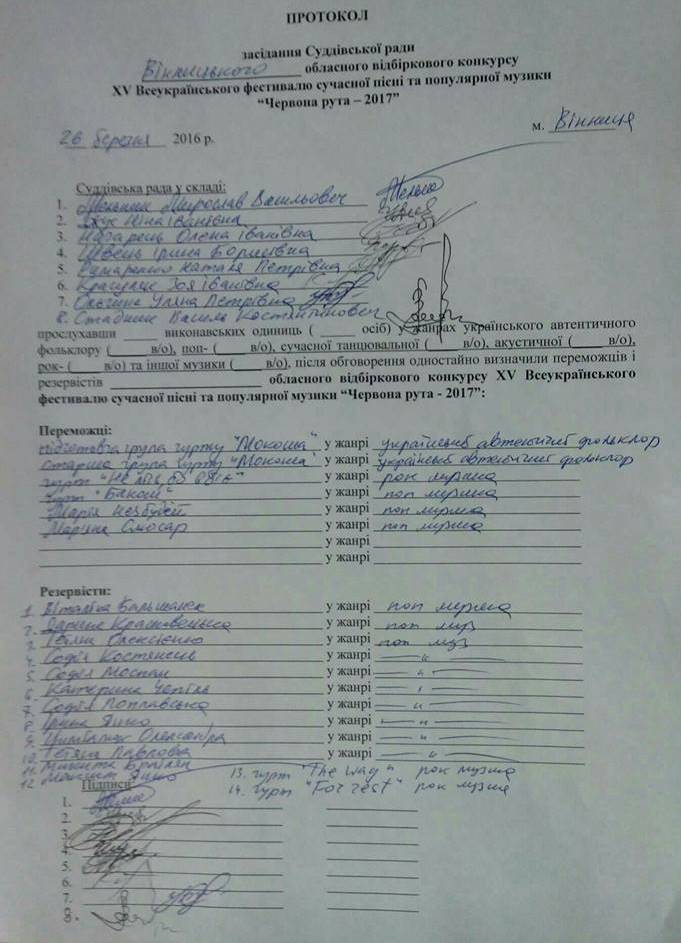 ПРОТОКОЛ
засідання Суддівської ради
Вінницького обласного відбіркового конкурсу
XV Всеукраїнського фестивалю сучасної пісні та популярної музики
“Червона рута – 2017”
26 березня 2016 р. м. Вінниця
Суддівська рада у складі:
1. Мельник Мирослав Васильович
2. Жук Ніна Іванівна
3. Олена Іванівна
4. Швець Ірина Борисівна
5. Наталя Петрівна
6. Зоя Іванівна
7. Уляна Петрівна
8. Стадник Василь Костянтинович
прослухавши ____ виконавських одиниць ( ____ осіб) у жанрах українського автентичного
фольклору ( ____ в/о), поп- ( ____ в/о), сучасної танцювальної ( ____ в/о), акустичної ( ____ в/о),
рок- ( ____ в/о) та іншої музики ( ____ в/о), після обговорення одностайно визначили переможців і
резервістів ____ обласного відбіркового конкурсу XV Всеукраїнського
фестивалю сучасної пісні та популярної музики “Червона рута - 2017”:
Переможці:
група гурту "Мокоша" у жанрі український автентичний фольклор
старша група гурту "Мокоша" у жанрі український автентичний фольклор
гурт у жанрі рок музика
гурт у жанрі поп музика
Марія Незбудей у жанрі поп музика
Мар'яна Смосар у жанрі поп музика
у жанрі
у жанрі
Резервісти:
1. Віталіна у жанрі поп музика
2. у жанрі поп муз
3. Олексієнко у жанрі поп муз
4. Софія у жанрі — " —
5. Софія Моспан у жанрі — " —
6. Катерина Чепіль у жанрі — " —
7. Софія Поплавська у жанрі — " —
8. Ірина Яшко у жанрі — " —
9. Цимбалюк Олександра у жанрі — " —
10. Тетяна Павлова у жанрі — " —
11. Микита
12. 13. гурт "The way" рок музика
Підписи: 14. гурт "For rest" рок музика
1.
2.
3.
4.
5.
6.
7.
8.